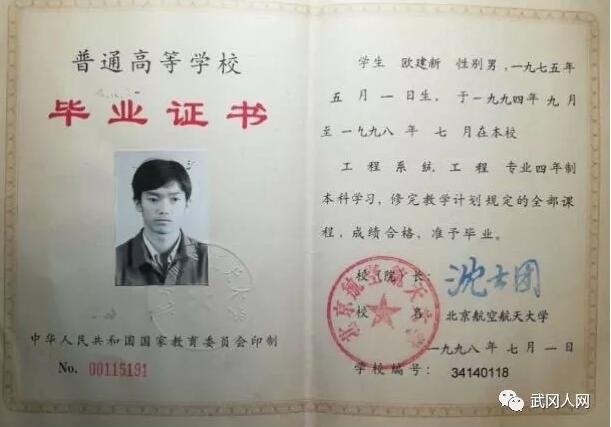 普通高等学校
毕业证书
中华人民共和国国家教育委员会印制
No. 00115191
学生 欧建新 性别男,一九七五年
五月一日生,于一九九四年 九月
至一九九八年 七月在本校
工程系统工程 专业四年制
本科学习,修完教学计划规定的全部课
程,成绩合格,准予毕业。
校(院)长: 沈士团
校 名 北京航空航天大学
北京航空航天大学
一九九八年七月一日
学校编号: 34140118
武冈人网